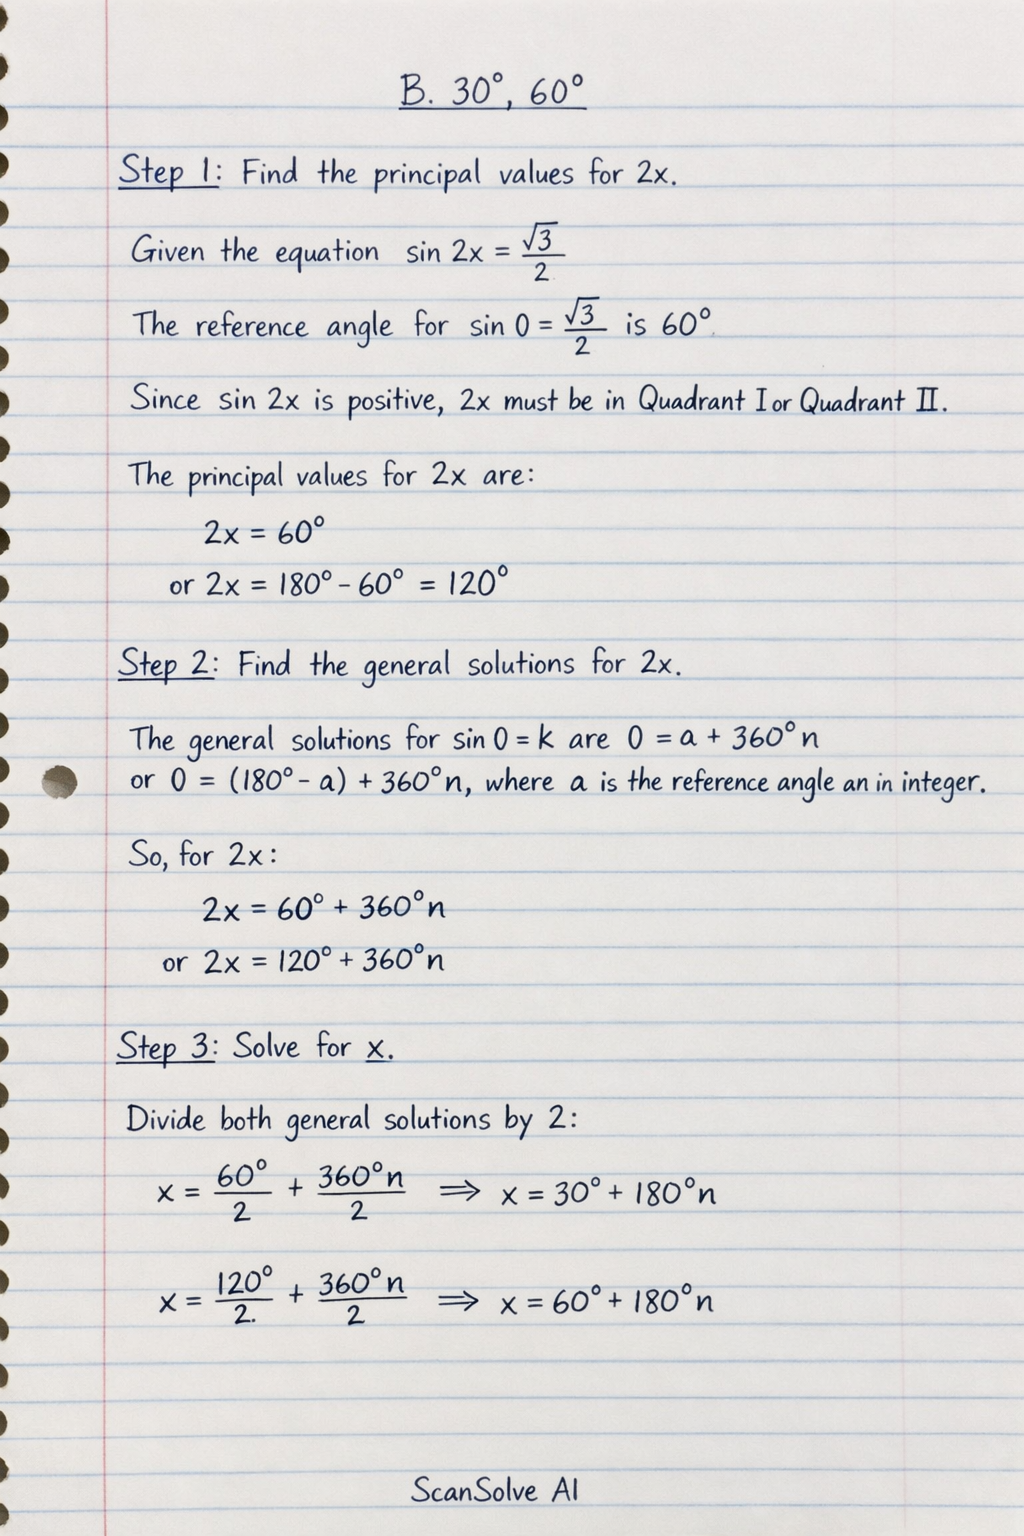 B. 30°, 60°
Step 1: Find the principal values for 2x.
Given the equation sin 2x = √3/2
The reference angle for sin 0 = √3/2 is 60°
Since sin 2x is positive, 2x must be in Quadrant I or Quadrant II.
The principal values for 2x are:
2x = 60°
or 2x = 180° - 60° = 120°
Step 2: Find the general solutions for 2x.
The general solutions for sin 0 = k are 0 = a + 360°n
or 0 = (180° - a) + 360°n, where a is the reference angle an in integer.
So, for 2x:
2x = 60° + 360°n
or 2x = 120° + 360°n
Step 3: Solve for x.
Divide both general solutions by 2:
x = 60°/2 + 360°n/2 ⟹ x = 30° + 180°n
x = 120°/2. + 360°n/2 ⟹ x = 60° + 180°n
ScanSolve AI